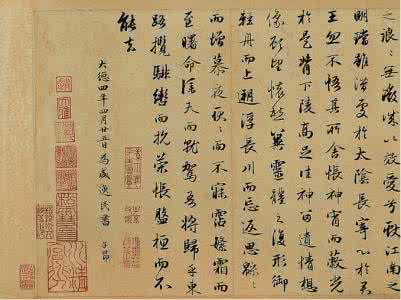 無微情以效愛兮獻江南之
明璫雖潛處於太陰長寄心於君
王忽不悟其所舍悵神宵而蔽光
於是背下陵高足往神留遺情想
像顧望懷愁冀靈體之復形御
輕舟而上遡浮長川而忘返思綿〻
而增慕夜耿〻而不寐霑繁霜而
至曙命僕夫而就駕吾將歸乎東
路攬騑轡而抗策悵盤桓而不
能去
大德四年四月廿五日為盛逸民書 子昂